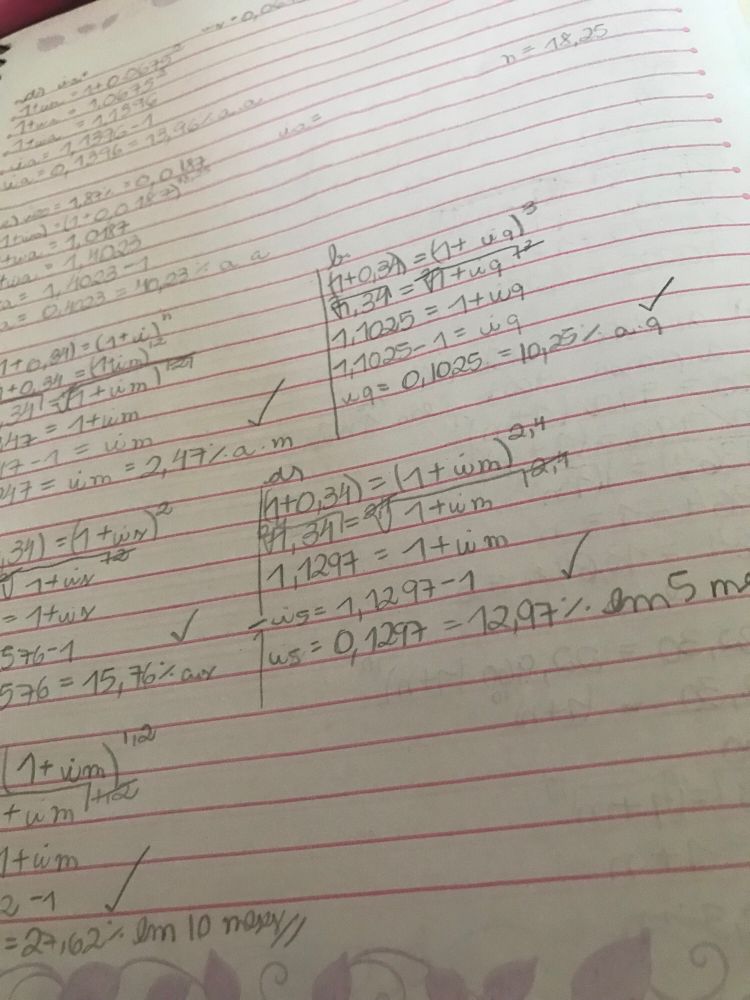 n = 18,25
1+ia = 1+0,0675²
1+ia = 1,0675²
1+ia = 1,1396
ia = 1,1396-1
ia = 0,1396 = 13,96% a.a
ia =
= 1,87% = 0,0187
1+ia) = (1+0,0187)
1+ia = 1,0187
1+ia = 1,4023
ia = 1,4023-1
a = 0,4023 = 40,23% a a
1+0,34) = (1+i)ⁿ
1+0,34 = (1+im)¹²
,34 = √(1+im)
247 = 1+im
47-1 = im
247 = im = 2,47% a.m
b-
(1+0,34) = (1+iq)³
1,34 = √1+iq
1,1025 = 1+iq
1,1025-1 = iq
iq = 0,1025 = 10,25% a.q
,34) = (1+is)²
√1+is
= 1+is
576-1
576 = 15,76% as
d-
(1+0,34) = (1+im)^2,4
1,34 = √1+im
1,1297 = 1+im
i5 = 1,1297-1
i5 = 0,1297 = 12,97% em 5 me
(1+im)^1,2
+im
1+im
2-1
= 27,62% em 10 meses//